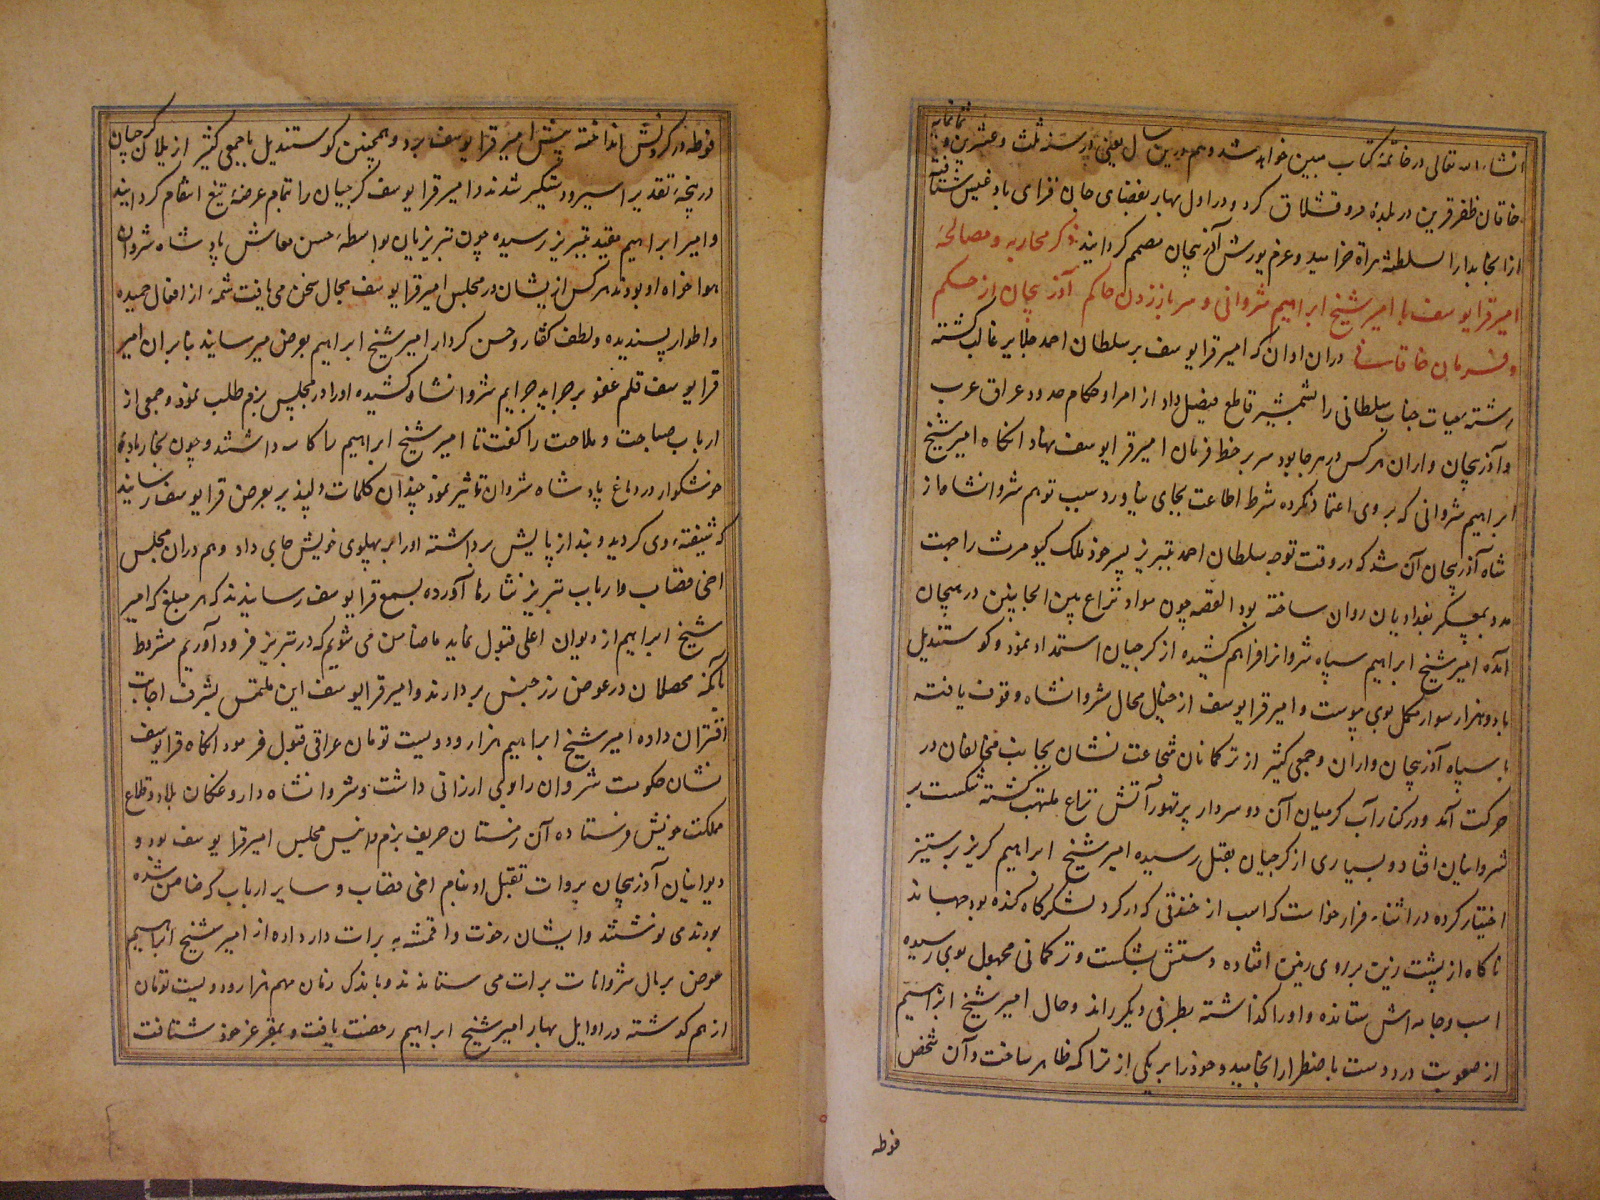 انشاء الله تعالی در خاتمهٔ کتاب مبین خواهد شد و هم درین سال یعنی در سنه ثلث و عشرین و ثمانمایه
خاقان ظفر قرین در بلدهٔ مرو قشلاق کرد و در اول بهار بفضای جان فزای بادغیس شتافته
از انجا بدار السلطنهٔ هراة خرامید و عزم یورش آذربیجان مصمم کردانید ذکر محاربه و مصالحهٔ
امیر قرا یوسف با امیر شیخ ابراهیم شروانی و سر باز زدن حاکم آذربیجان از حکم
و فرمان خاقانی دران اوان که امیر قرا یوسف بر سلطان احمد جلایر غالب کشته
رشتهٔ حیات جناب سلطانی را بشمشیر قاطع فیصل داد از امرا و حکام حدود عراق عرب
و آذربیجان و اران هر کس در هر جا بود سر بر خط فرمان امیر قرا یوسف نهاد الا که امیر شیخ
ابراهیم شروانی که بر وی اعتماد نکرده شرط اطاعت بجای نیاورد و سبب توهم شروانشاه از
شاه آذربیجان آن شد که در وقت توجه سلطان احمد بتبریز پسر خود ملک کیومرث را جهت
مدد بمعسکر بغدادیان روان ساخته بود القصه چون مواد نزاع بین الجانبین در هیجان
آمده امیر شیخ ابراهیم سپاه شروانرا فراهم کشیده از کرجیان استمداد نمود و کوستندیل
با دو هزار سوار مکمل بوی پیوست و امیر قرا یوسف از خیال محال شروانشاه وقوف یافته
با سپاه آذربیجان و اران و جمعی کثیر از ترکمانان شجاعت نشان بجانب مخالفان در
حرکت آمد و در کنار آب کر میان آن دو سردار پر تهور آتش نزاع ملتهب کشته شکست بر
شروانیان افتاد و بسیاری از کرجیان بقتل رسیده امیر شیخ ابراهیم کریز بر ستیز
اختیار کرده در اثناء فرار خواست که اسب از خندقی که در کرد لشکرکاه کنده بود جهاند
ناکاه از پشت زین بر روی زمین افتاده دستش بشکست و ترکمانی مجهول بوی رسیده
اسب و جامه اش ستانده و او را کذاشته بطرفی دیکر راند و حال امیر شیخ ابراهیم
از صعوبت درد دست باضطرار انجامید و خود را بر یکی از تراکمه ظاهر ساخت و آن شخص
فوطه
فوطه در کردنش انداخته پیش امیر قرا یوسف برد و همچنین کوستندیل با جمعی کثیر از بلاد کرجیان
در پنجهٔ تقدیر اسیر و دستکیر شدند و امیر قرا یوسف کرجیان را تمام عرضهٔ تیغ انتقام کردانید
و امیر ابراهیم مقید بتبریز رسیده چون تبریزیان بواسطهٔ حسن معاش پادشاه شروان
هوا خواه او بودند هر کس ازیشان در مجلس امیر قرا یوسف مجال سخن می یافت شمهٔ از افعال حمیده
و اطوار پسندیده و لطف کفتار و حسن کردار امیر شیخ ابراهیم بعرض میرسانید بنابران امیر
قرا یوسف قلم عفو بر جراید جرایم شروانشاه کشیده او را در مجلس بزم طلب نمود و جمعی از
ارباب صباحت و ملاحت را کفت تا امیر شیخ ابراهیم را کاسه داشتند و چون بخار بادهٔ
خوشکوار در دماغ پادشاه شروان تاثیر نمود چندان کلمات دلپذیر بعرض قرا یوسف رسانید
که شیفتهٔ وی کردید و بند از پایش برداشته او را بر پهلوی خویش جای داد و هم دران مجلس
اخی قصاب و ارباب تبریز نثارها آورده بسمع قرا یوسف رسانیدند که هر مبلغ که امیر
شیخ ابراهیم از دیوان اعلی قبول نماید ما ضامن می شویم که در تبریز فرود آوریم مشروط
بآنکه محصلان در عوض زر جنس بردارند و امیر قرا یوسف این ملتمس بشرف اجابت
اقتران داده امیر شیخ ابراهیم هزار و دویست تومان عراقی قبول فرمود انکاه قرا یوسف
نشان حکومت شروان را وی ارزانی داشت و شروانشاه داروغکان ببلاد و قلاع
مملکت خویش فرستاده آن زمستان حریف بزم و انیس مجلس امیر قرا یوسف بود و
دیوانیان آذربیجان بروات تقبل او بنام اخی قصاب و سایر ارباب که ضامن شده
بودند می نوشتند و ایشان رخوت و اقمشه به برات دار داده از امیر شیخ ابراهیم
عوض بر مال شروانات برات می ستاندند و باندک زمان مهم هزار و دویست تومان
از هم کذشته در اوایل بهار امیر شیخ ابراهیم رخصت یافت و بمقر عز خود شتافت